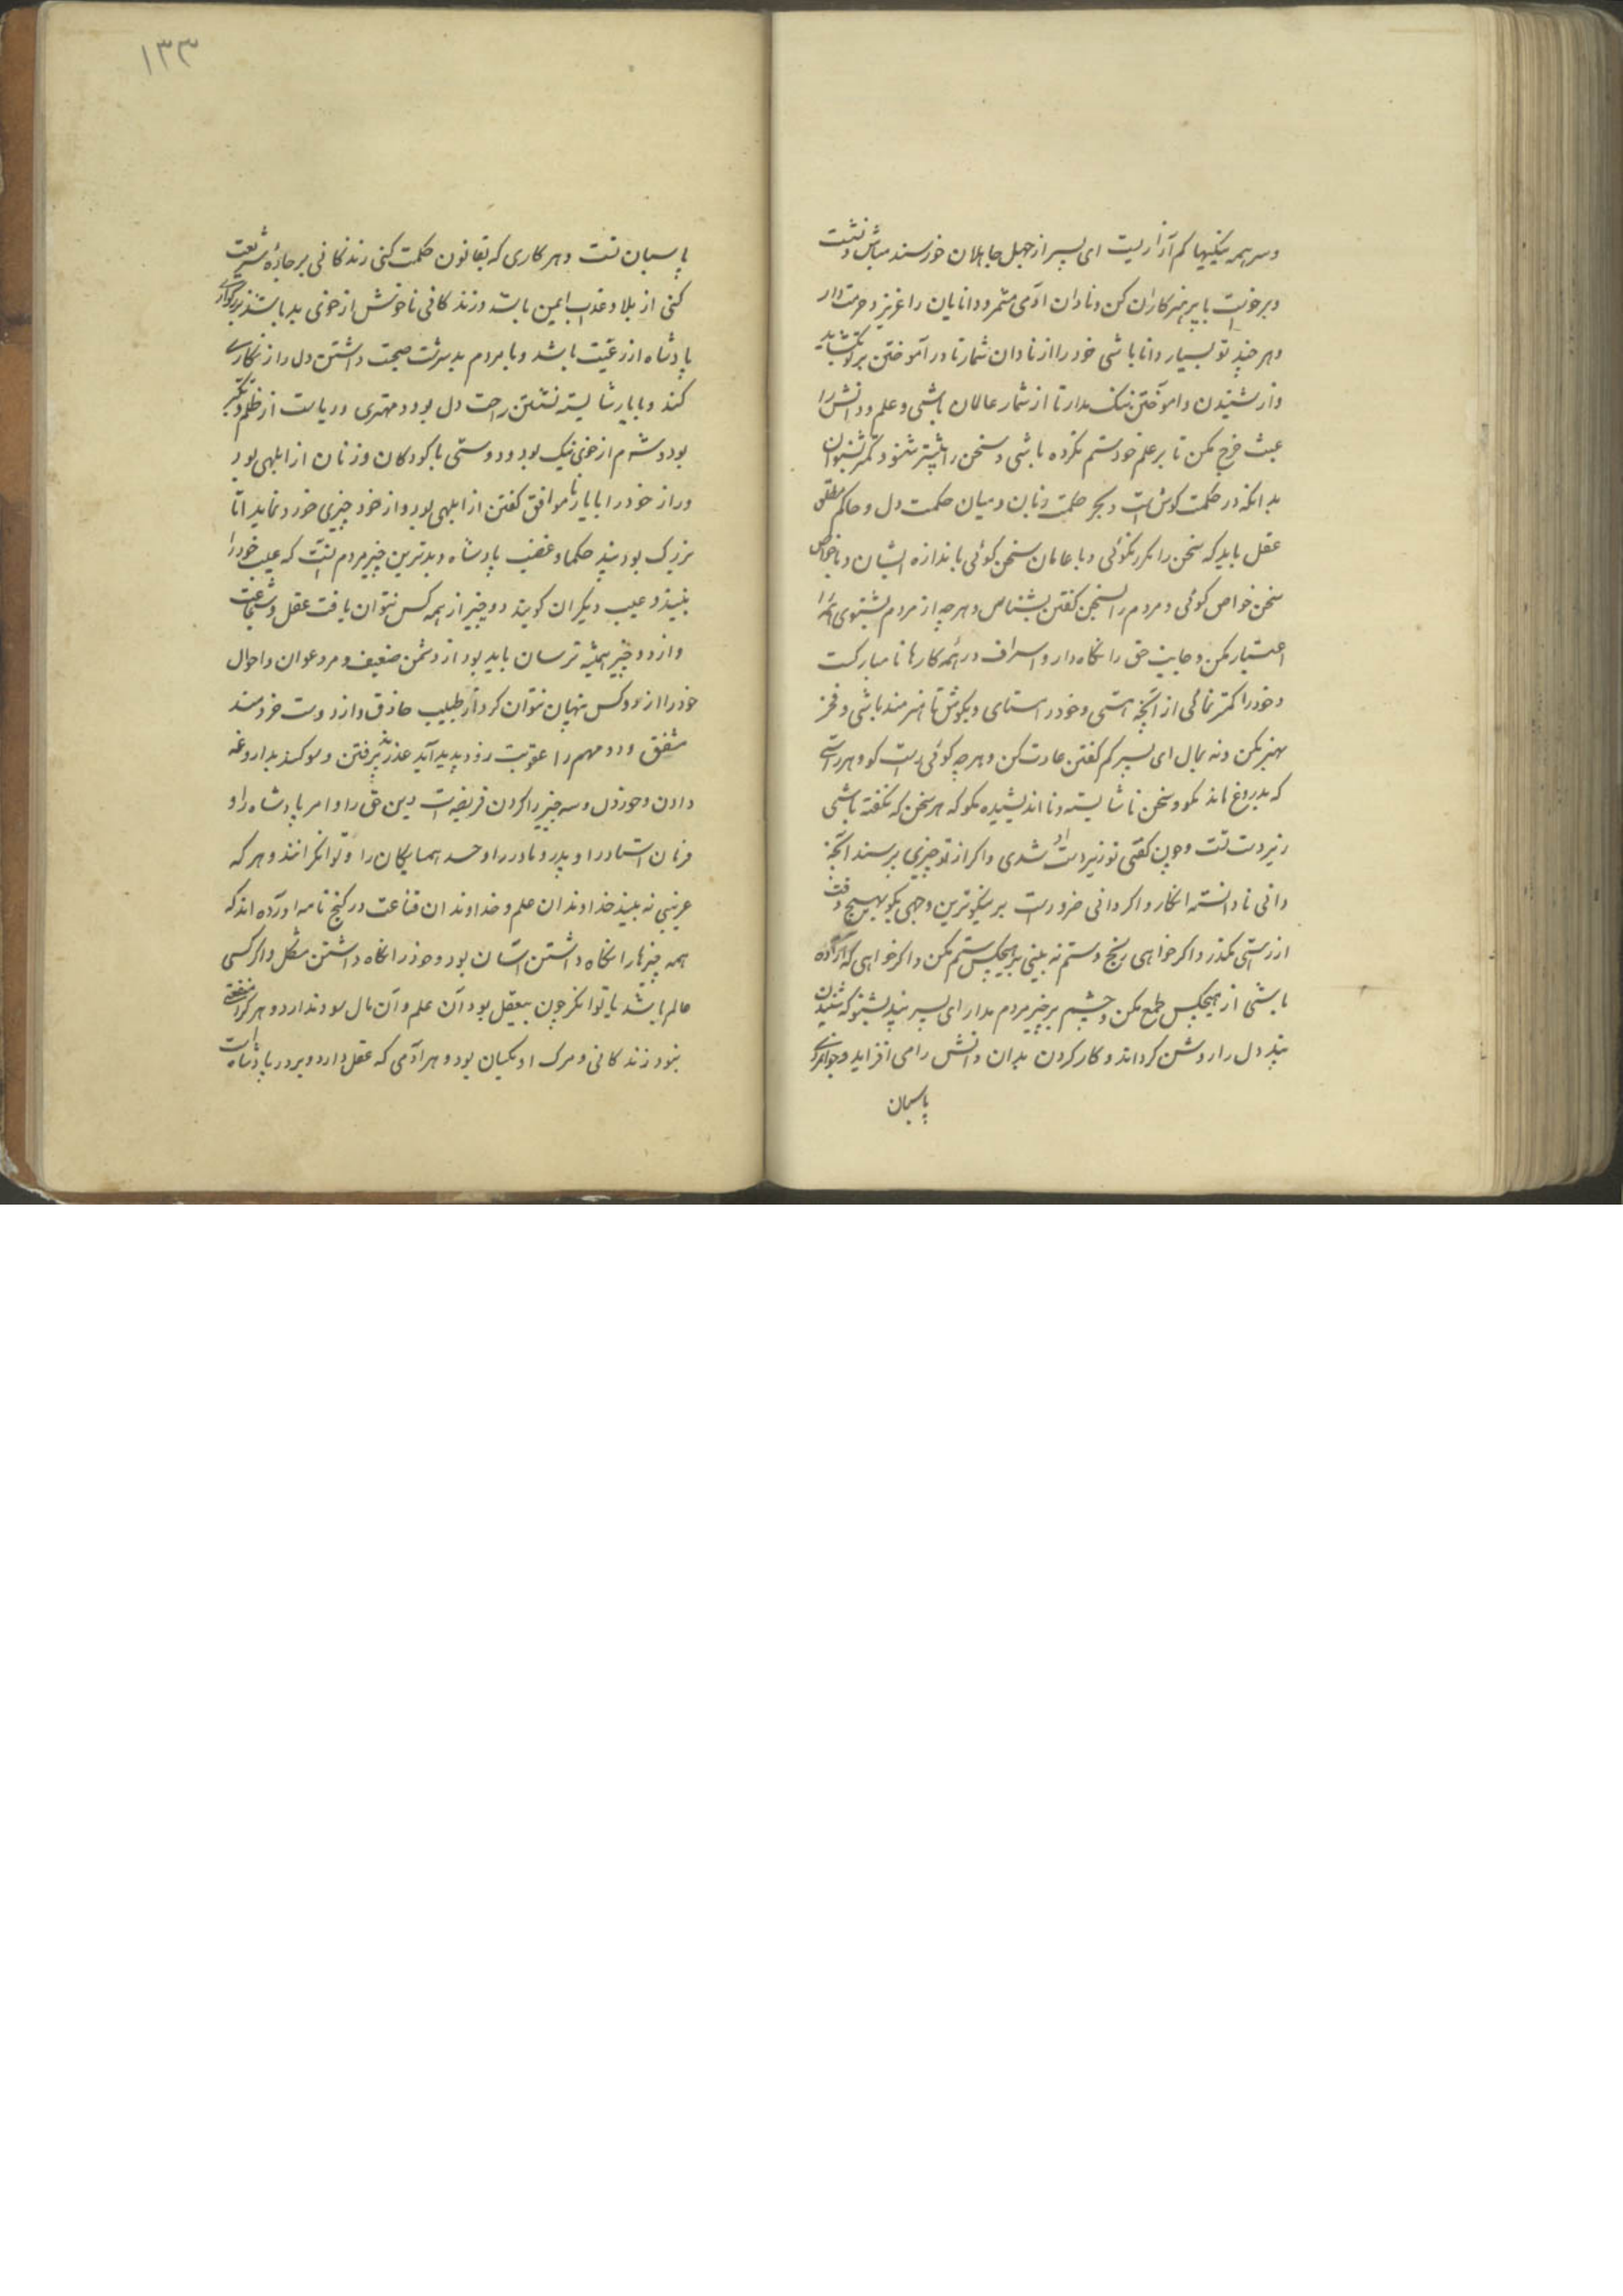 وسر همه نیکیها کم آزاریست ای پسر از جهل جاهلان خورسند مباش ونشست
وبرخاست با پرهیزکاران کن ونادان آدمی مشمر ودانایان را عزیز وحرمت دار
وهر چند تو بسیار دانا باشی خود را از نادان شمار تا در آموختن بر تو بگشاید
واز شنیدن وآموختن ننک مدار تا از شمار عالمان باشی وعلم ودانش را
عبث خرج مکن تا بر علم خود ستم نکرده باشی وسخن را بیشتر شنو وکمتر
بدانکه در حکمت کوش است وبحر حکمت زبان ومیان حکمت دل وحاکم مطلق
عقل باید که سخن را مکرر نکوئی وبا عامان سخن کوئی باندازه ایشان وبا خواص
سخن خواص کوئی ومردم را بسخن کفتن بشناس وهرچه از مردم بشنوی همه را
اعتبار مکن وجانب حق را نکاه دار واسراف در همه کارها نامبارکست
وخود را کمتر نمائی از آنچه هستی وخود را مستای وبکوش تا هنرمند باشی وفخر
بهنر کن ونه بمال ای پسر کم کفتن عادت کن وهرچه کوئی راست کو وهر راستی
که بدروغ ماند مکو وسخن ناشایسته ونااندیشیده مکو که هر سخن که نکفته باشی
زیر دست تست وچون کفتی تو زیر دست او شدی واکر از تو چیزی پرسند آنچه
دانی نادانسته انکار واکر دانی ضرورست بر نیکوترین وجهی بکو بهیچ وقت
از راستی مکذر واکر خواهی رنج وستم نه بینی بر هیچکس ستم مکن واکر خواهی که آزاده
باشی از هیچکس طمع مکن وچشم بر چیز مردم مدار ای پسر پند بشنو که شنیدن
پند دل را روشن کرداند وکار کردن بدان دانش را می افزاید وجوانمردی
پاسبان
۱۳۳
پاسبان تست وهر کاری که بقانون حکمت کنی زندکانی بر جاده شریعت
کنی از بلا وعذاب ایمن باشد وزندکانی ناخوش از خوی بد باشد
پادشاه از رعیت باشد وبا مردم بد سرشت صحبت داشتن دل را زنکاری
کند وبا یار شایسته نشستن راحت دل بود ومهتری وریاست از ظلم وتکبر
بود وشرم از خوی نیک بود ودوستی با کودکان وزنان از ابلهی بود
وراز خود را با یار ناموافق کفتن از ابلهی بود واز خرد چیزی خورد نماید اما
بزرک بود پند حکما وغضب پادشاه وبدترین چیز مردم آنست که عیب خود را
نبیند وعیب دیکران کویند دو چیز از همه کس نتوان یافت عقل وشجاعت
واز دو چیز همیشه ترسان باید بود از دشمن ضعیف ومرد عوان واحوال
خود را از دو کس پنهان نتوان کرد از طبیب حاذق واز دوست خردمند
مشفق ودو مهم را عقوبت زود پدید آید عذر پذیرفتن وسوکند بدروغ
دادن وخوردن وسه چیز را کردن فریضه است دین حق را وامر پادشاه را و
فرمان استاد را وپدر ومادر را وحسد همسایکان را وتوانکرانند وهر که
غریبی نه بیند خداوندان علم وخداوندان قناعت در کنج نامه آورده اند که
همه چیزها را نکاه داشتن آسان بود وخود را نکاه داشتن مشکل واکر کسی
عالم باشد یا توانکر چون بیعقل بود آن علم وآن مال سود ندارد وهر کرا منفعتی
نبود زندکانی ومرک او یکسان بود وهر آدمی که عقل دارد وبرد پادشاه است